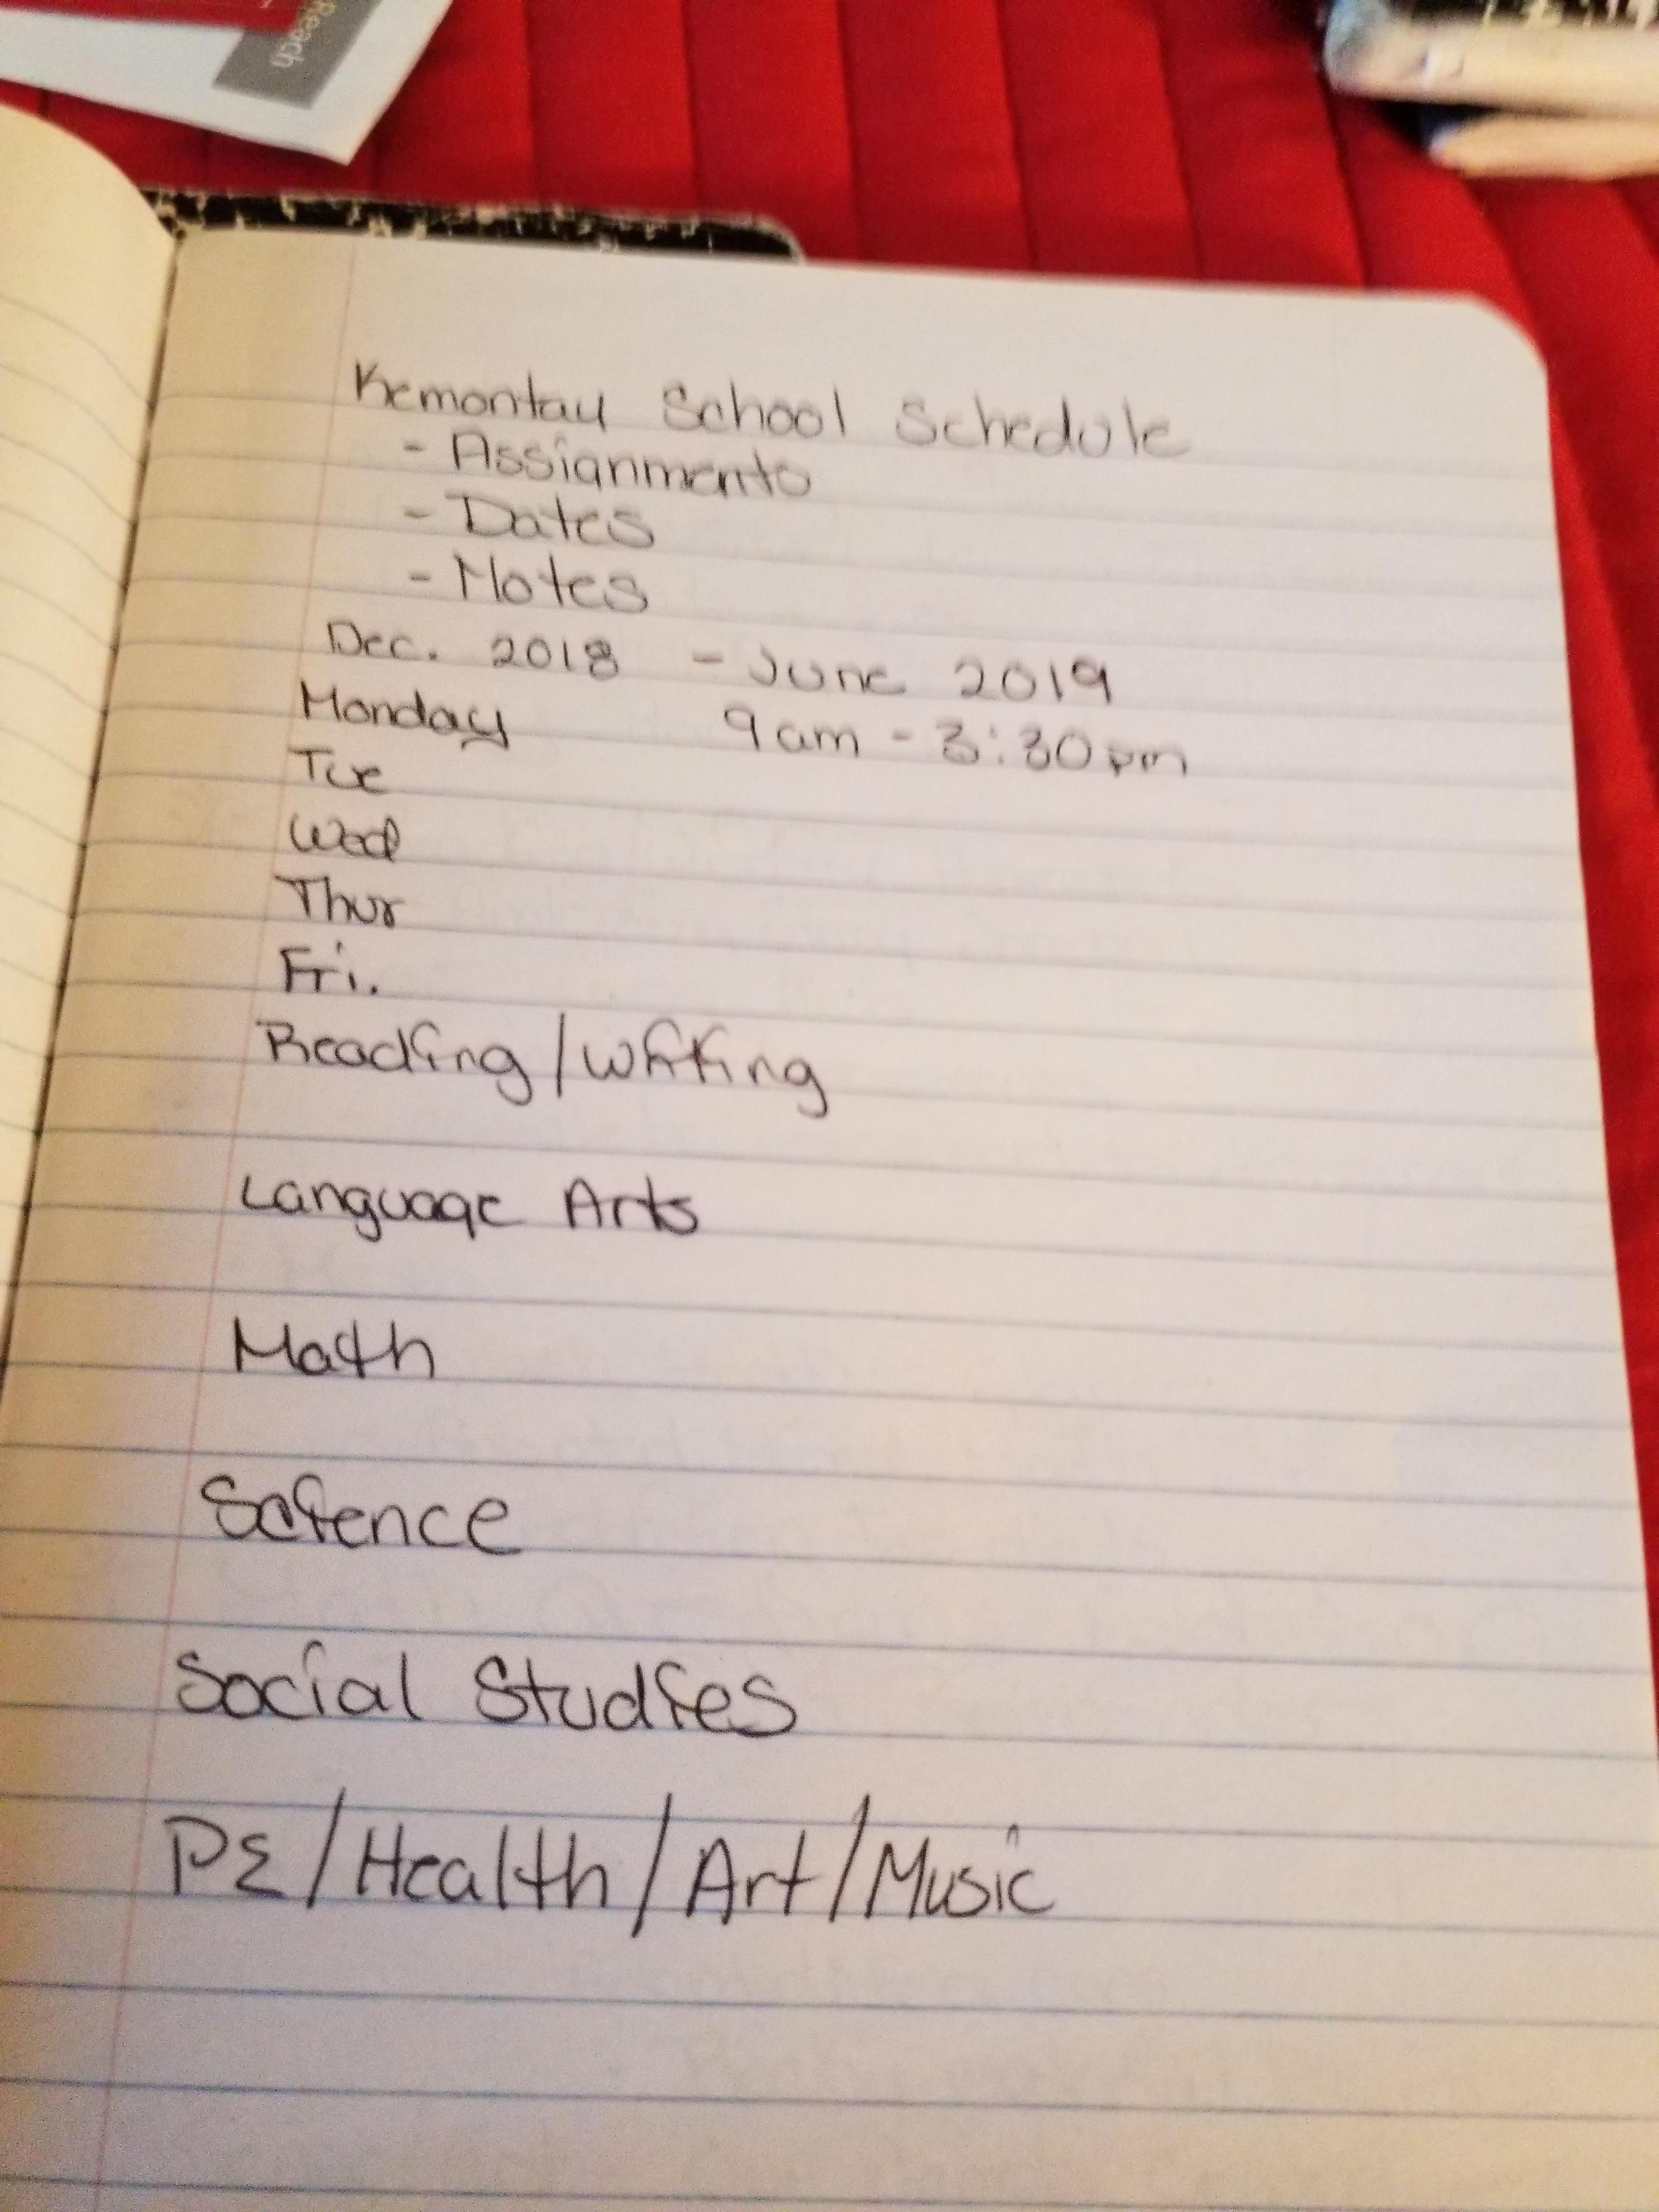 Reach
Kemontay School Schedule
- Assignments
- Dates
- Notes
Dec. 2018 - June 2019
Monday 9am - 3:30pm
Tue
Wed
Thur
Fri.
Reading/Writing
Language Arts
Math
Science
Social Studies
PE/Health/Art/Music